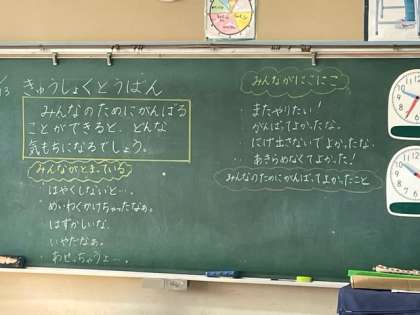 /13 きゅうしょくとうばん
みんなのためにがんばる
ことができると、どんな
気もちになるでしょう。
みんながとまっている
・はやくしないと…。
・めいわくかけちゃったなぁ。
・はずかしいな。
・いやだなぁ。
・あせっちゃうよ…。
みんながにこにこ
・またやりたい!
・がんばってよかったな。
・にげ出さないでよかったな。
・あきらめなくてよかった!
みんなのためにがんばってよかったこと